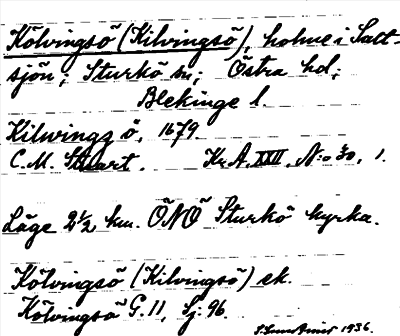 Kölvingsö (Kilvingsö), holme i Salt-
sjön; Sturkö sn; Östra hd;
Blekinge l.
Kilwings ö, 1679.
C.M. Stuart. Kr.A. XXII, N:o 30, 1.
Läge 2½ km. ÖNÖ Sturkö kyrka.
Kölvingsö (Kilvingsö) ek.
Kölvingsö G. 11, Sj: 96.
1936.